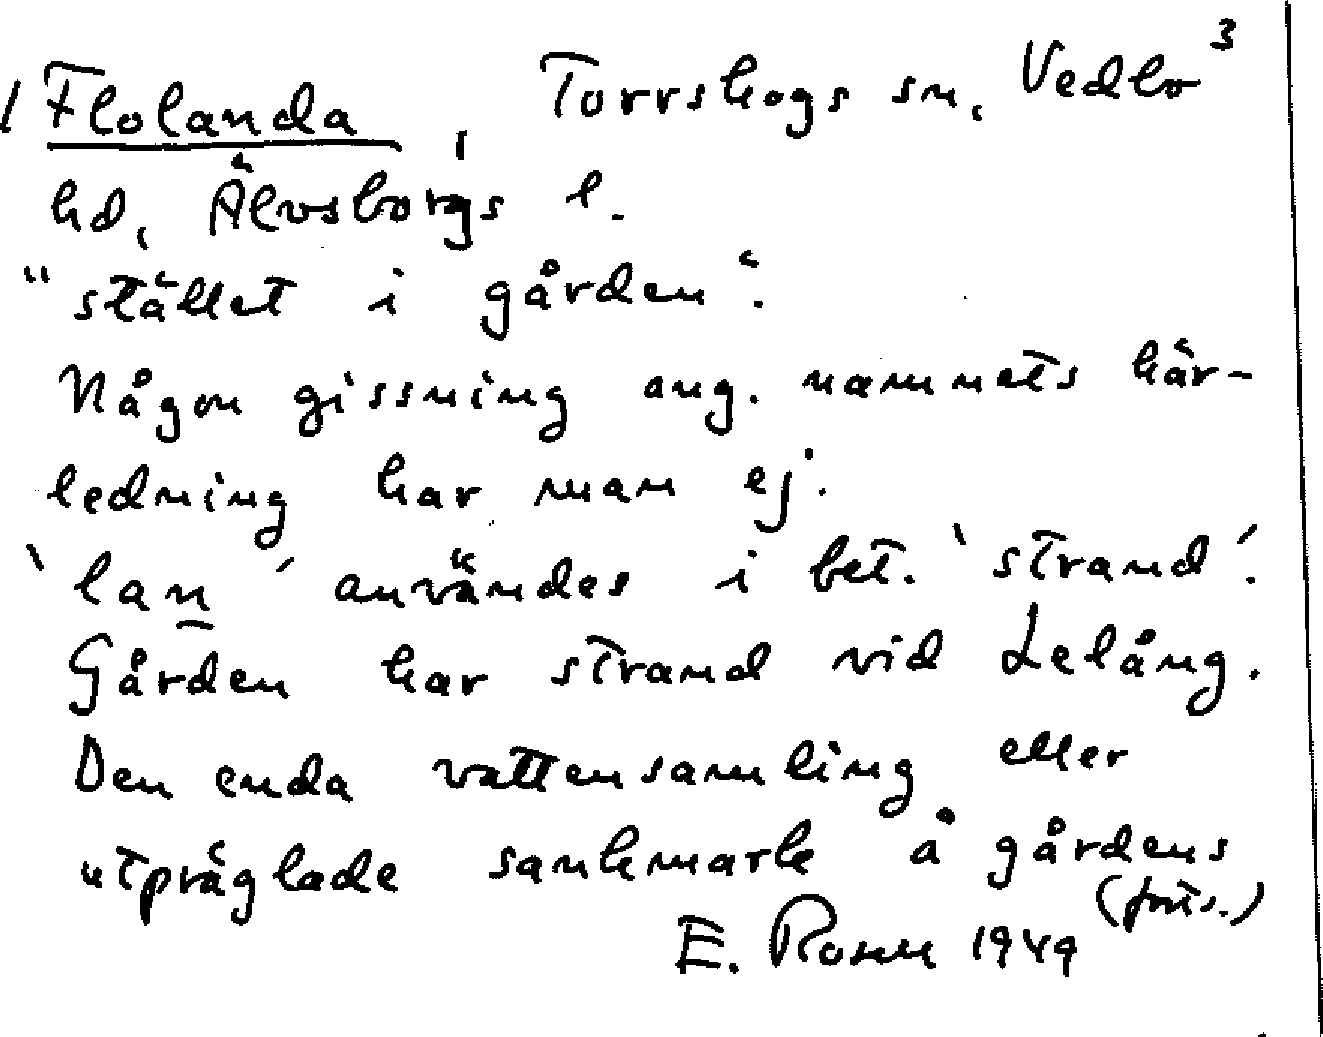 Flolanda, Torrskogs sn, Vedbo 3
hd, Älvsborgs l.
"stället i gården".
Någon gissning ang. namnets här-
ledning har man ej.
'lan' användes i bet. 'strand'.
Gården har strand vid Lelång.
Den enda vattensamling eller
utpräglade sankmark å gårdens
(forts.)
E. Rosell 1949